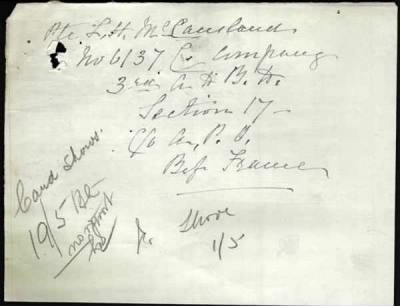 Pte. L. H. McCausland
No 6137 C. Company
3rd A. D. B. D.
Section 17
C/o A. P. O.
B.E.F. France
Card shows.
19/5 BE
no report
1/5